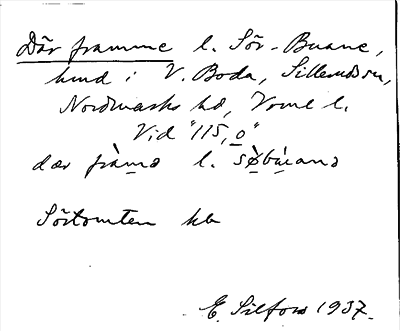 Där framme l. Sör-Buane,
hmd i V. Boda, Sillerud sn,
Nordmarks hd, Vrml l.
Vid "115,0"
dær fràmə l. sø̀bùanə
Sörtomten kb
E. Silfors 1937.